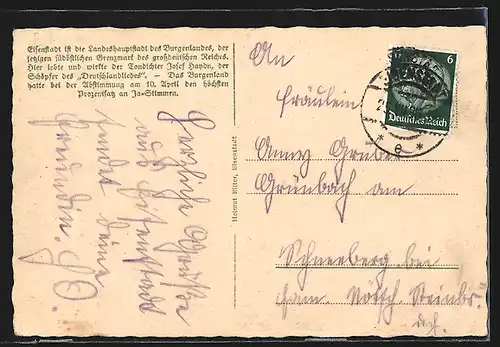 Eisenstadt ist die Landeshauptstadt des Burgenlandes, der
jetzigen südöstlichen Grenzmark des großdeutschen Reichs.
Hier lebte und wirkte der Tondichter Josef Haydn, der
Schöpfer des „Deutschlandliedes". — Das Burgenland
hatte bei der Abstimmung am 10. April den höchsten
Prozentsatz an Ja-Stimmen.
Herzliche Grüße
aus Eisenstadt
sendet deine
Freundin
Helmut Ritter, Eisenstadt
An
Fräulein
Anny Gruber
Grünbach am
Schneeberg bei
Fam. Steinbr.
6
Deutsches Reich
* e *